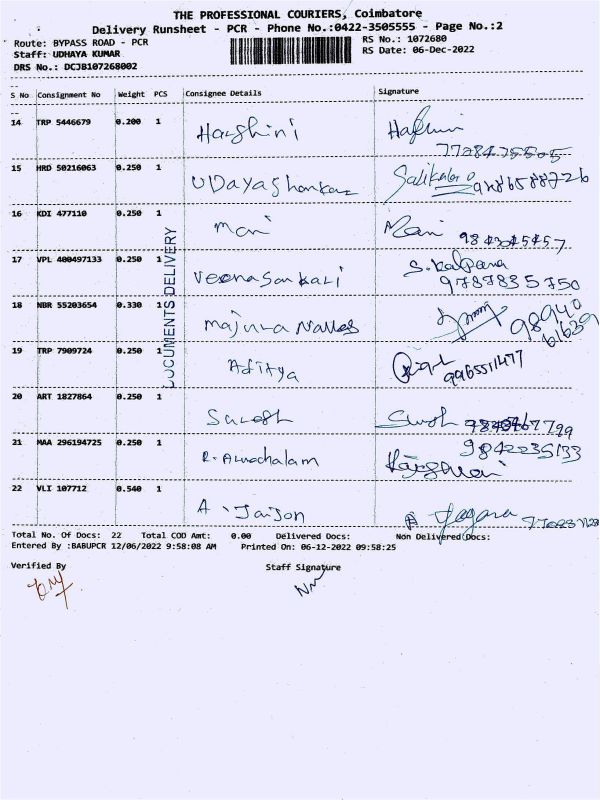 THE PROFESSIONAL COURIERS, Coimbatore
Delivery Runsheet - PCR - Phone No.:0422-3505555 - Page No.:2
Route: BYPASS ROAD - PCR
RS No.: 1072680
Staff: UDHAYA KUMAR
RS Date: 06-Dec-2022
DRS No.: DCJB107268002
S No Consignment No Weight PCS Consignee Details Signature
14 TRP 5446679 0.200 1 Harshini
15 HRD 50216063 0.250 1 Udayashankar
16 KDI 477110 0.250 1 Mani Mani 984
17 VPL 400497133 0.250 1 Veenasankari S. Kalpana
9787835750
18 NBR 55203654 0.330 1
19 TRP 7909724 0.250 1 Aditya 9965511477
20 ART 1827864 0.250 1 Suresh
21 MAA 296194725 0.250 1 R. Arunachalam 9842235133
22 VLI 107712 0.540 1 A. Jaison
DOCUMENTS DELIVERY
Total No. Of Docs: 22 Total COD Amt: 0.00 Delivered Docs: Non Delivered Docs:
Entered By :BABUPCR 12/06/2022 9:58:08 AM Printed On: 06-12-2022 09:58:25
Verified By Staff Signature